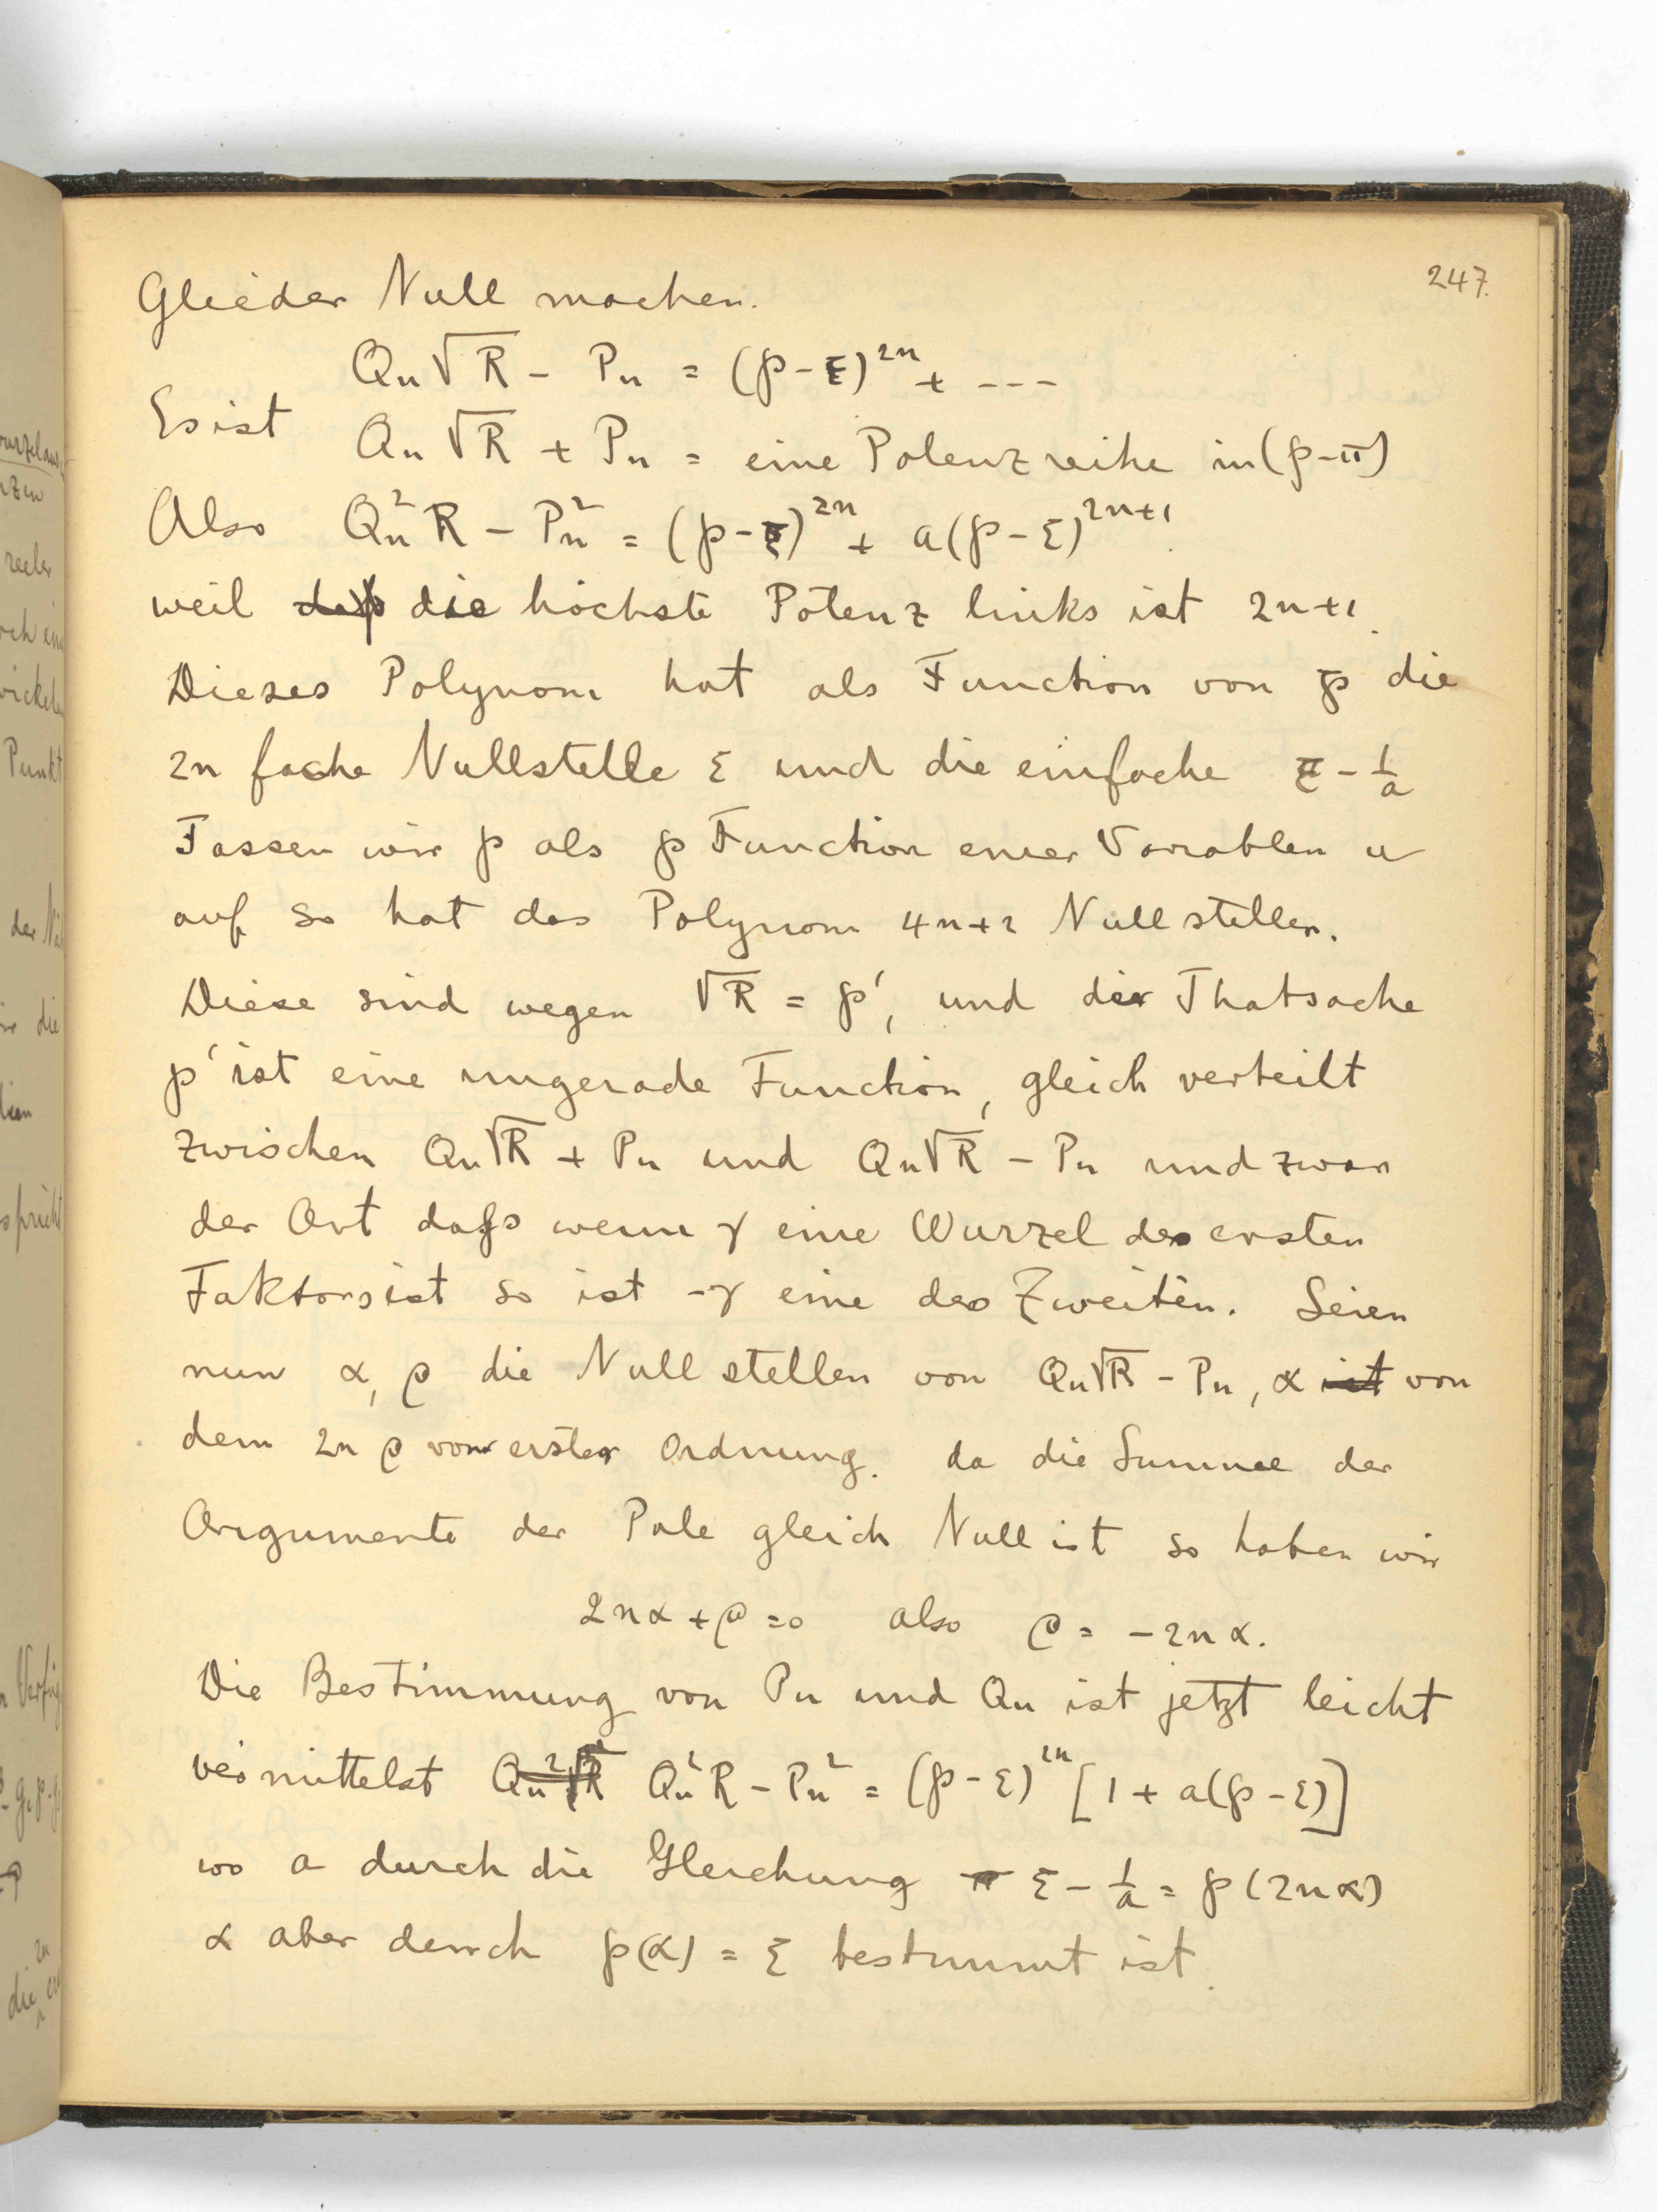 247.
Glieder Null machen.
Qn√R - Pn = (℘-ξ)²ⁿ + ---
Es ist Qn√R + Pn = eine Potenzreihe in (℘-π)
Also Qn²R - Pn² = (℘-ξ)²ⁿ + a(℘-ξ)²ⁿ⁺¹.
weil die höchste Potenz links ist 2n+1.
Dieses Polynom hat als Function von ℘ die
2n fache Nullstelle ξ und die einfache ξ - 1/a
Fassen wir ℘ als ℘ Function einer Variablen u
auf so hat das Polynom 4n+2 Nullstellen.
Diese sind wegen √R = ℘', und der Thatsache
℘' ist eine ungerade Function, gleich verteilt
zwischen Qn√R + Pn und Qn√R - Pn und zwar
der Art daſs wenn γ eine Wurzel des ersten
Faktors ist so ist -γ eine des Zweiten. Seien
nun α, β die Nullstellen von Qn√R - Pn, α ist von
dem 2n β von erster Ordnung. da die Summe der
Argumente der Pole gleich Null ist so haben wir
2nα + β = 0 also β = -2nα.
Die Bestimmung von Pn und Qn ist jetzt leicht
vermittelst Qn²√R Qn²R - Pn² = (℘-ξ)²ⁿ [1 + a(℘-ξ)]
wo a durch die Gleichung π ξ - 1/a = ℘(2nα)
α aber durch ℘(α) = ξ bestimmt ist.